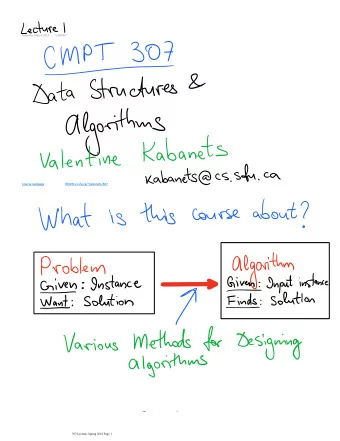 Lecture 1
CMPT 307
Data Structures &
Algorithms
Valentine Kabanets
kabanets@cs.sfu.ca
What is this course about?
Problem
Given: Instance
Want: Solution
Algorithm
Given: Input instance
Finds: Solution
Various Methods for Designing
algorithms